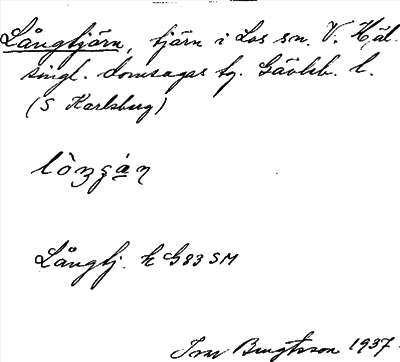 Långtjärn, tjärn i Los sn. V. Häl-
singl. domsagas tg. Gävleb. l.
(S Karlsberg)
lòŋʒáη
Långtj. k G83 SM
Ivar Bengtsson 1937.